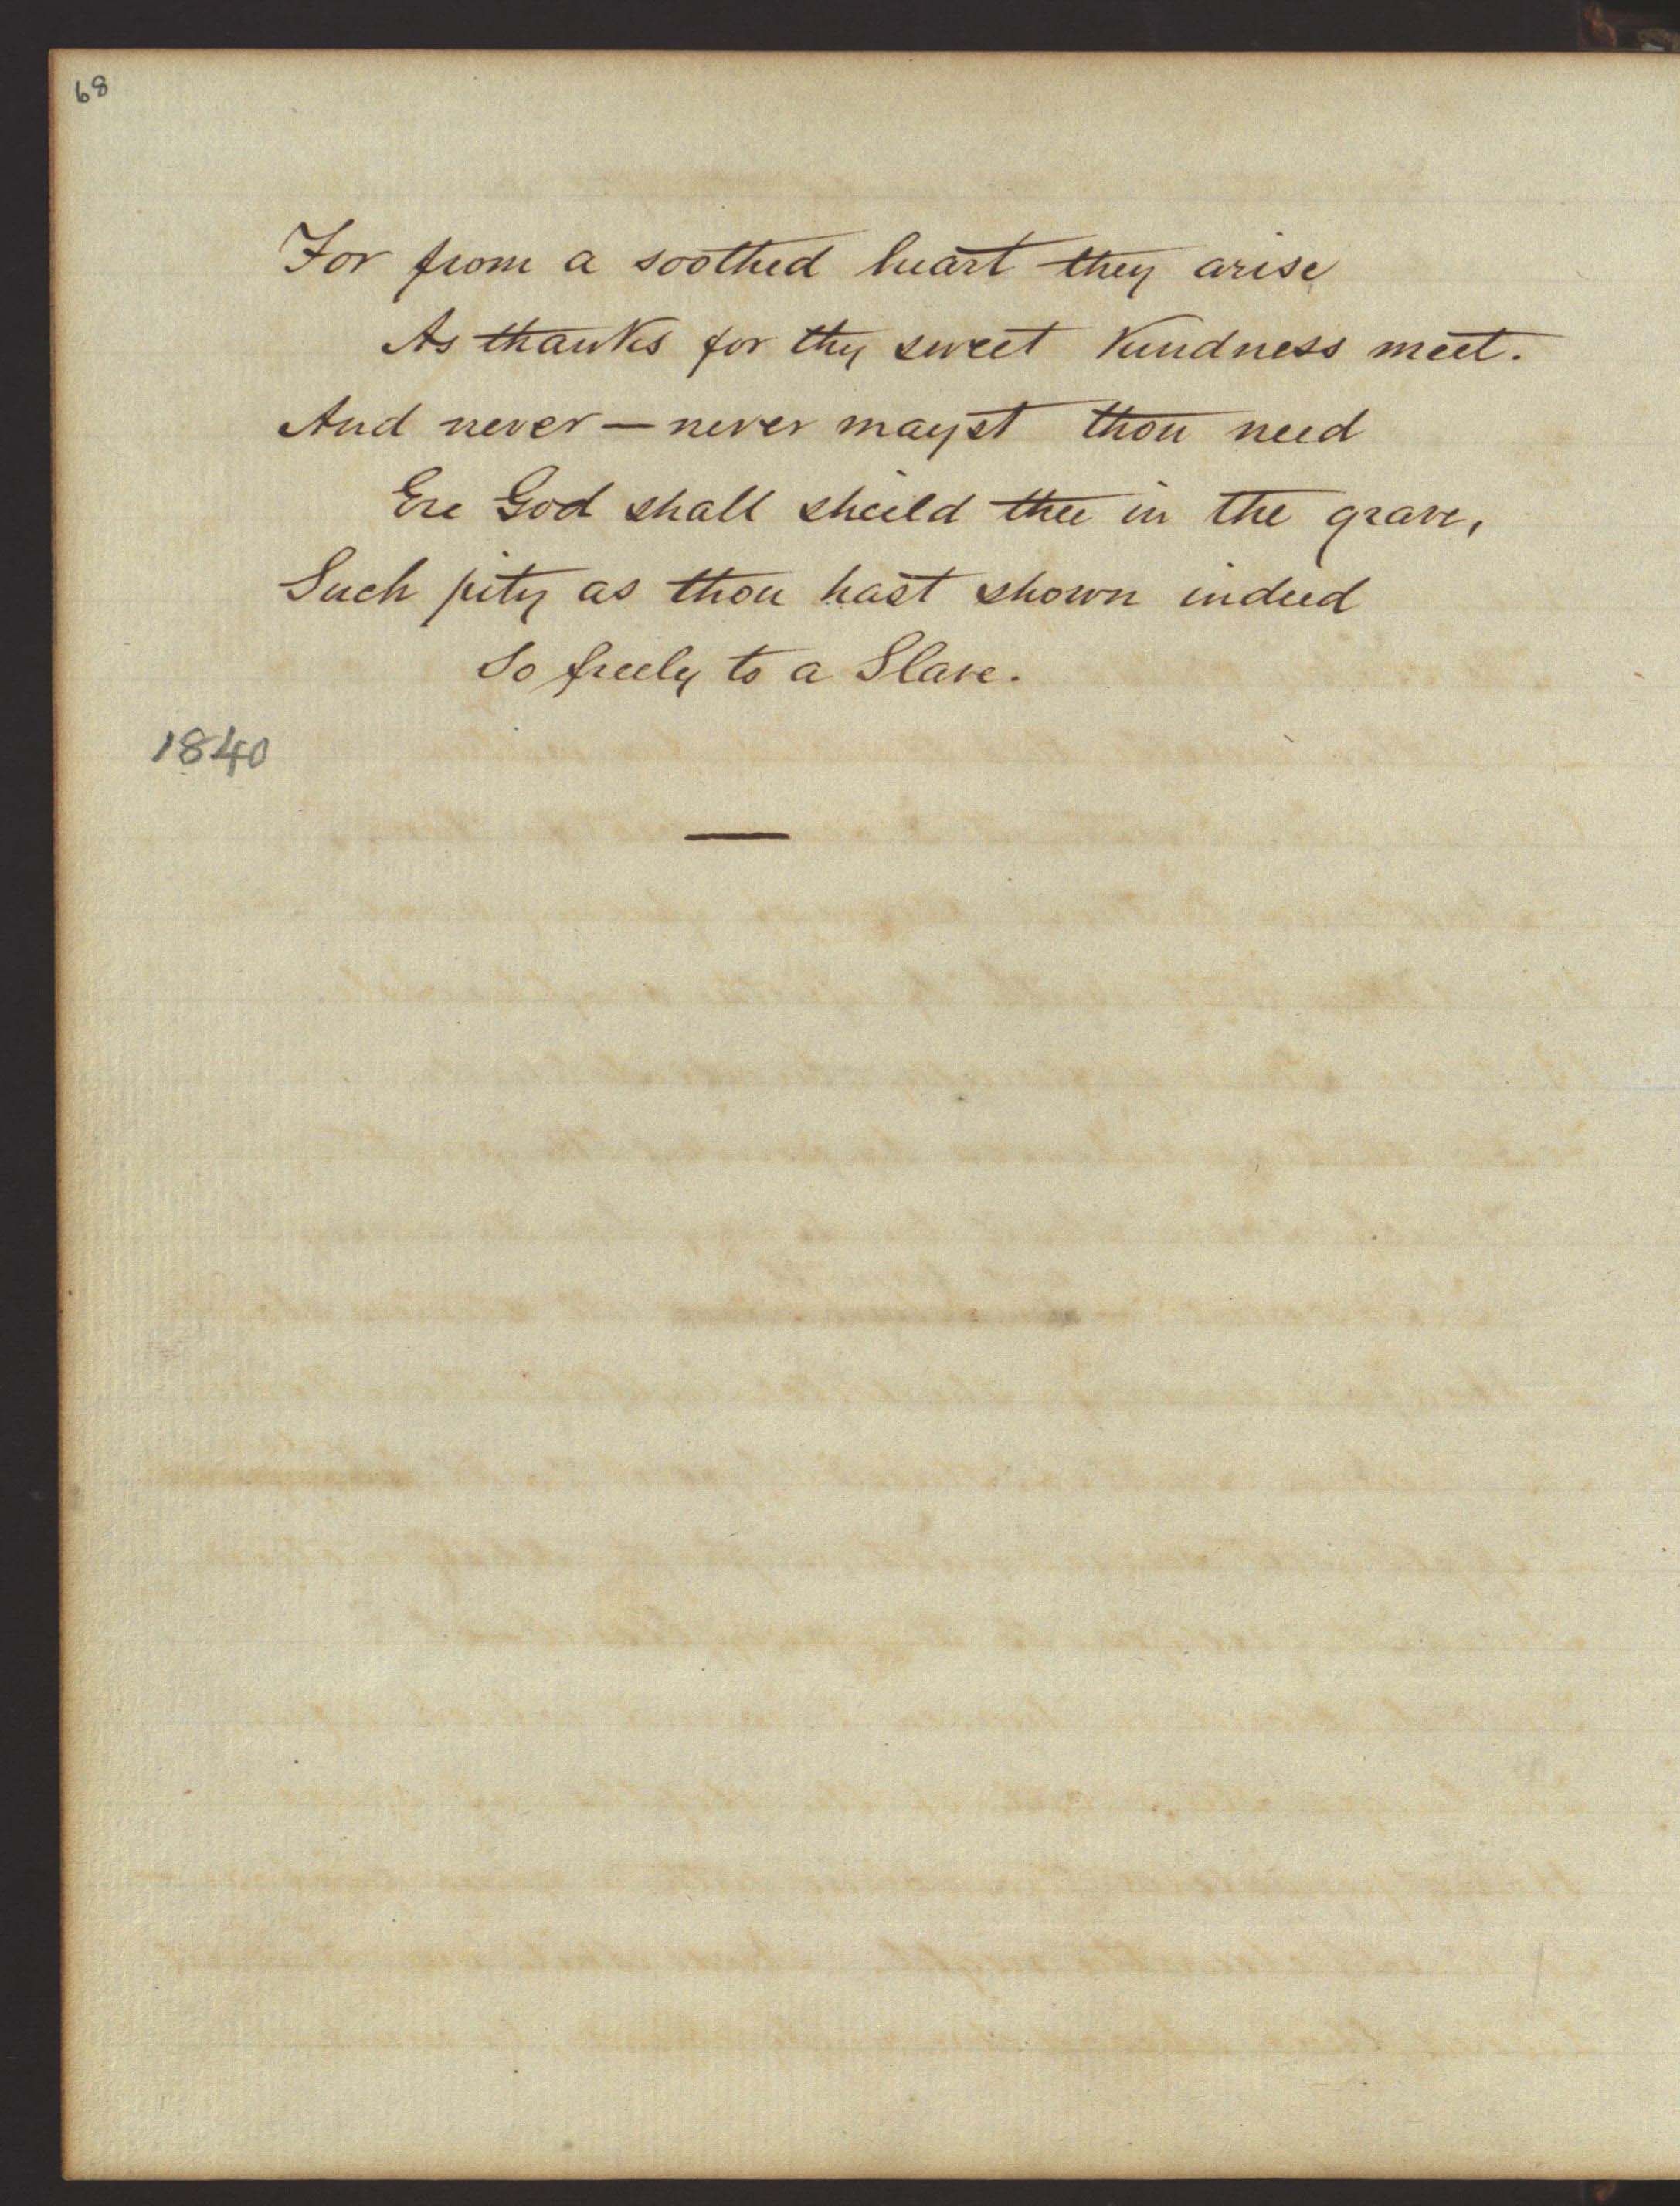 68
For from a soothed heart they arise
As thanks for thy sweet kindness meet.
And never — never mayst thou need
Ere God shall sheild thee in the grave,
Such pity as thou hast shown indeed
So freely to a Slave.
1840